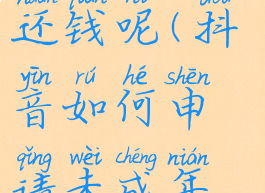 还钱呢(抖
yīn rú hé shēn
音如何申
qǐng wèi chéng nián
请未成年